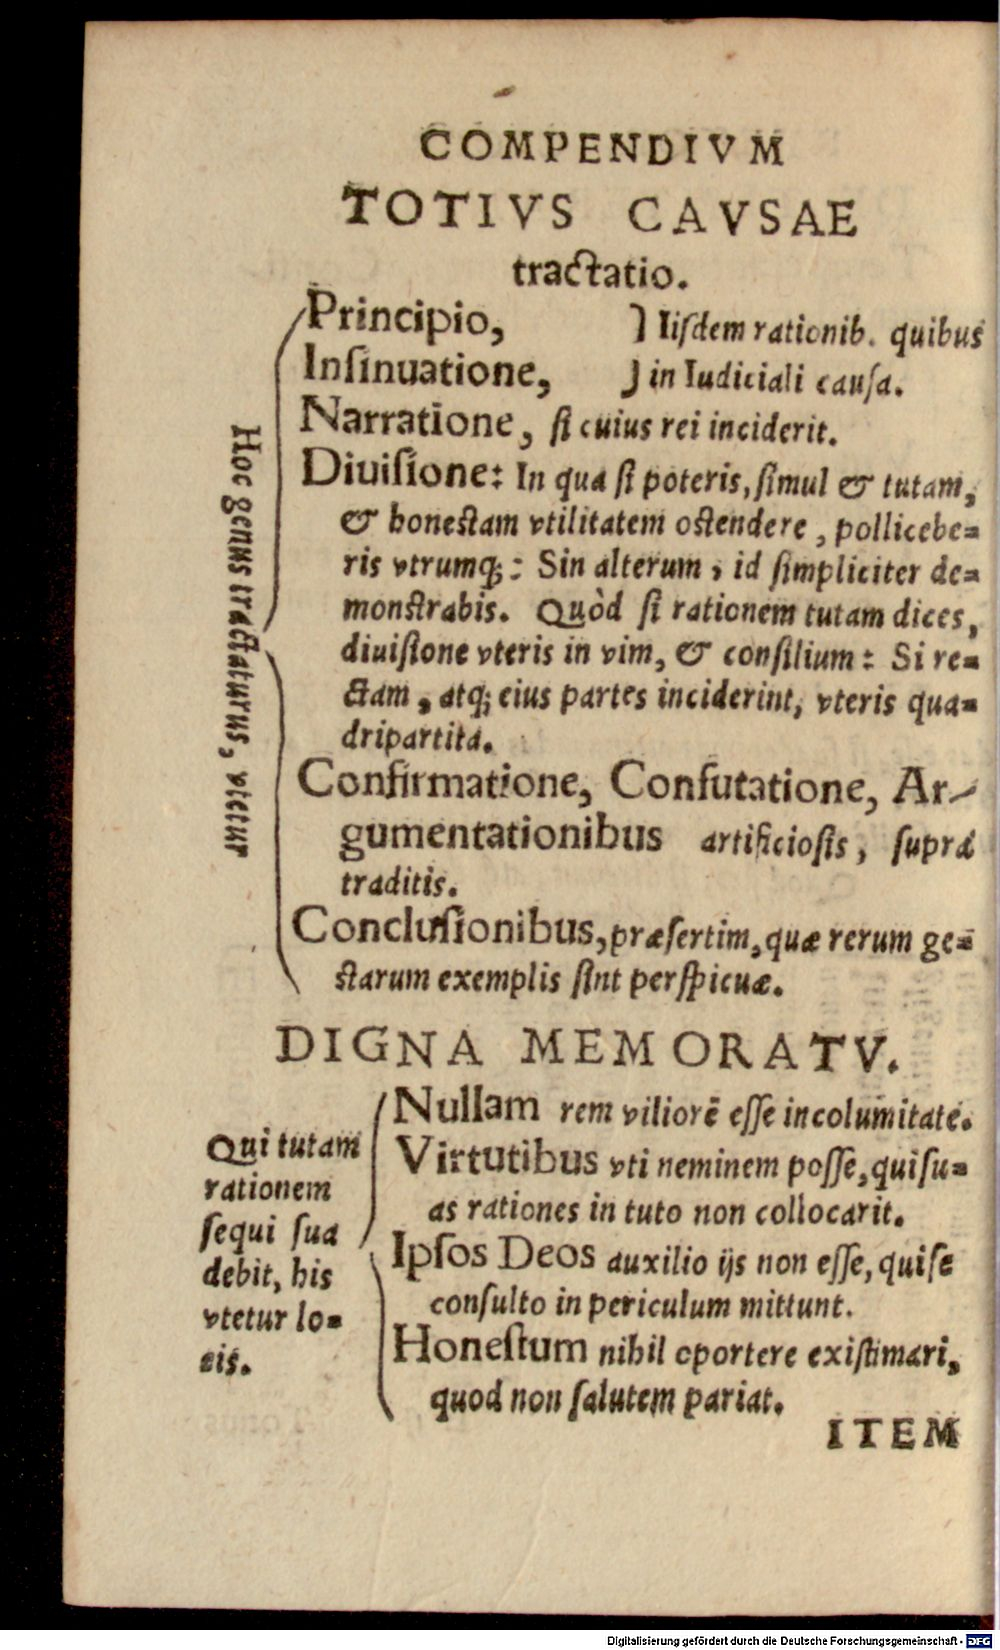 COMPENDIVM
TOTIVS CAVSAE
tractatio.
Hoc genus tractaturus, vtetur
Principio, } Iiſdem rationib. quibus
Inſinuatione, } in Iudiciali cauſa.
Narratione, ſi cuius rei inciderit.
Diuiſione: In qua ſi poteris, ſimul & tutam,
& honeſtam vtilitatem oſtendere, pollicebe-
ris vtrumq;: Sin alterum, id ſimpliciter de-
monſtrabis. Quòd ſi rationem tutam dices,
diuiſione vteris in vim, & conſilium: Si re-
ctam, atq; eius partes inciderint, vteris qua-
dripartita.
Confirmatione, Confutatione, Ar-
gumentationibus artificioſis, ſuprà
traditis.
Concluſionibus, præſertim, quæ rerum ge-
ſtarum exemplis ſint perſpicuæ.
DIGNA MEMORATV.
Qui tutam
rationem
ſequi ſua
debit, his
vtetur lo-
cis.
Nullam rem viliorē eſſe incolumitate.
Virtutibus vti neminem poſſe, qui ſu-
as rationes in tuto non collocarit.
Ipſos Deos auxilio ijs non eſſe, qui ſe
conſulto in periculum mittunt.
Honeſtum nihil oportere exiſtimari,
quod non ſalutem pariat.
ITEM
Digitalisierung gefördert durch die Deutsche Forschungsgemeinschaft - DFG